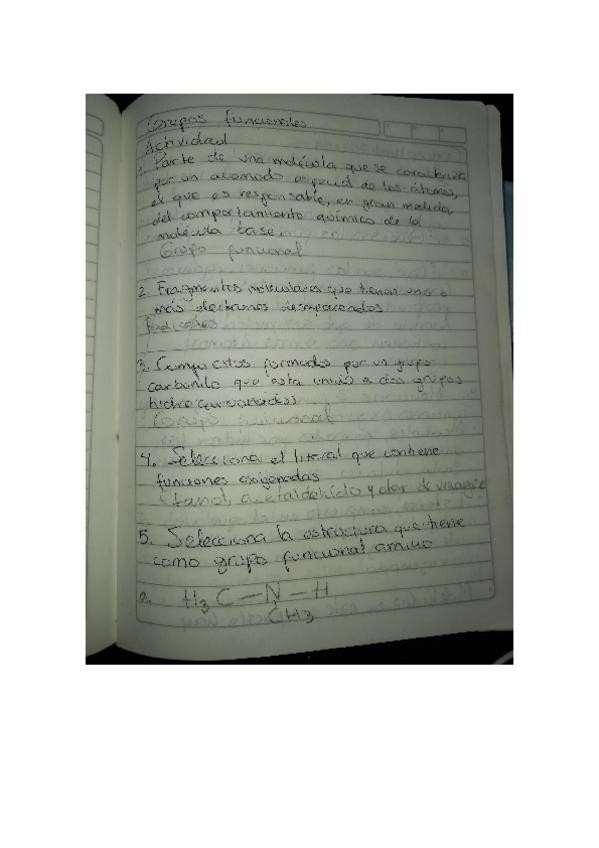 Grupos funcionales
Actividad
1. Parte de una molécula que se caracteriza
por un acomodo especial de los átomos,
el que es responsable, en gran medida,
del comportamiento químico de la
molécula base.
Grupo funcional
2. Fragmentos moleculares que tienen uno o
más electrones desapareados
Radicales
3. Compuestos formados por un grupo
carbonilo que esta unido a dos grupos
hidrocarbonados
Grupo funcional
4. Selecciona el literal que contiene
funciones oxigenadas
Etanol, acetaldehído y olor de vinagre
5. Selecciona la estructura que tiene
como grupo funcional amino
a. H3 C — N — H
CH3